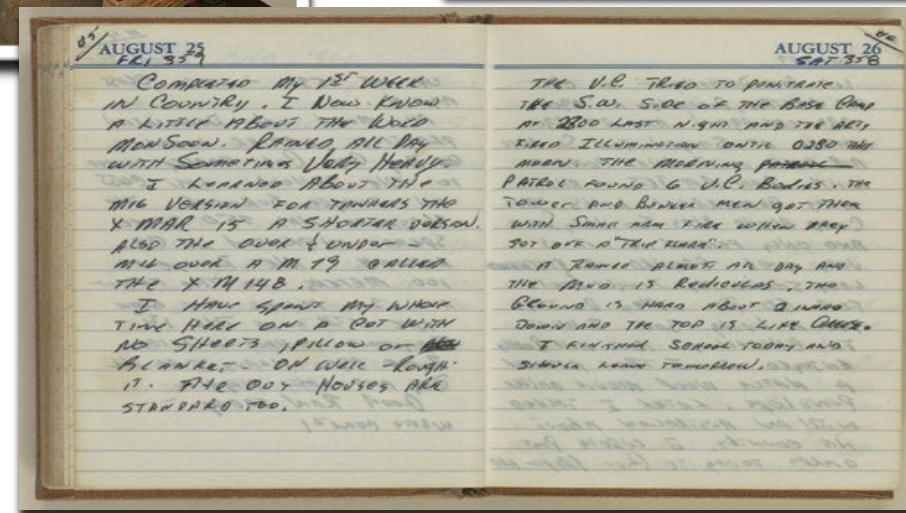 85
AUGUST 25
FRI 359
COMPLETED MY 1ST WEEK
IN COUNTRY. I NOW KNOW
A LITTLE ABOUT THE WORD
MONSOON. RAINED ALL DAY
WITH SOMETIMES VERY HEAVY.
I LEARNED ABOUT THE
M16 VERSION FOR TANKERS THE
X MAR 15 A SHORTER VERSION.
ALSO THE OVER & UNDER -
M16 OVER A M 79 CALLED
THE X M 148.
I HAVE SPENT MY WHOLE
TIME HERE ON A COT WITH
NO SHEETS, PILLOW OR
BLANKET - OH WELL - ROUGH
IT. THE OUT HOUSES ARE
STANDARD TOO.
86
AUGUST 26
SAT 358
THE V.C. TRIED TO PENITRATE
THE S.W. SIDE OF THE BASE CAMP
AT 2300 LAST NIGHT AND THE ARTY
FIRED ILLUMINATION UNTIL 0230 THIS
MORN. THE MORNING PATROL
PATROL FOUND 6 V.C. BODIES. THE
TOWER AND BUNKER MEN GOT THEM
WITH SMALL ARM FIRE WHEN THEY
SET OFF A "TRIP FLARE".
IT RAINED ALMOST ALL DAY AND
THE MUD IS REDICULAS. THE
GROUND IS HARD ABOUT 2 INCHES
DOWN AND THE TOP IS LIKE
I FINISHED SCHOOL TODAY AND
SHOULD LEAVE TOMORROW.